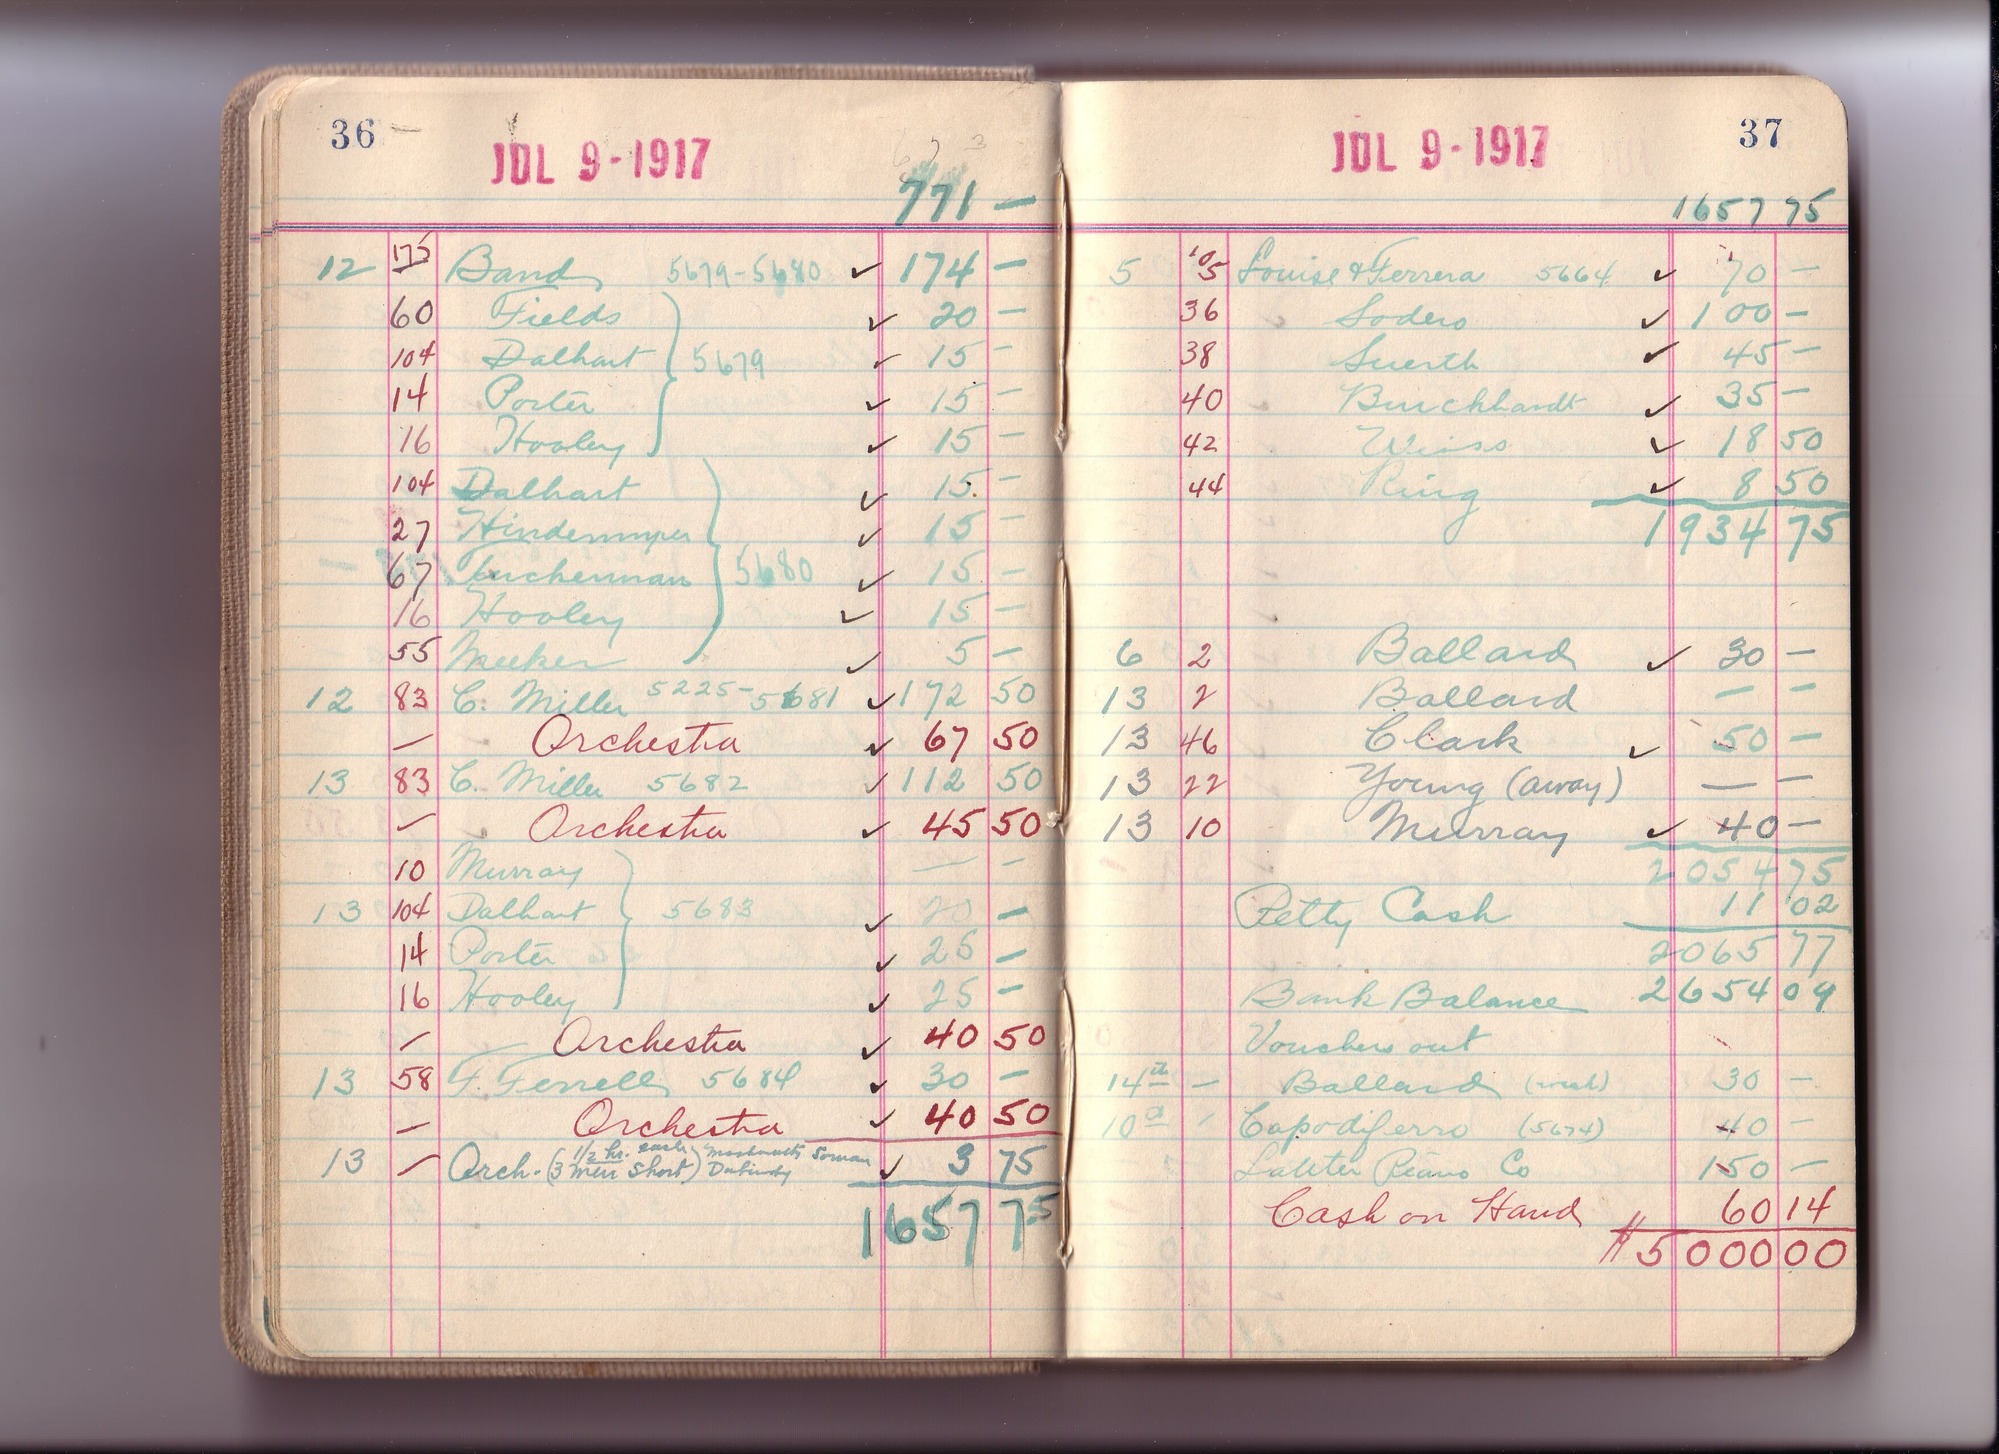 36 —
JUL 9 - 1917
771 —
12 175 Band 5679-5680 ✓ 174 —
60 Fields ✓ 20 —
104 Dalhart 5679 ✓ 15 —
14 Porter ✓ 15 —
16 Hooley ✓ 15 —
104 Dalhart ✓ 15 —
27 Hindermyer ✓ 15 —
67 Tuckerman 5680 ✓ 15 —
16 Hooley ✓ 15 —
55 Meeker ✓ 5 —
12 83 C. Miller 5225-5681 ✓ 172 50
— Orchestra ✓ 67 50
13 83 C. Miller 5682 ✓ 112 50
— Orchestra ✓ 45 50
10 Murray — —
13 104 Dalhart 5683 ✓ 20 —
14 Porter ✓ 25 —
16 Hooley ✓ 25 —
— Orchestra ✓ 40 50
13 58 F. Ferrell 5684 ✓ 30 —
— Orchestra ✓ 40 50
13 — Orch. (1/2 hr. each 3 men short) ✓ 3 75
1657 75
37
JUL 9 - 1917
1657 75
5 105 Louise & Ferrera 5664 ✓ 70 —
36 Sodero ✓ 100 —
38 Suerth ✓ 45 —
40 Burckhardt ✓ 35 —
42 Weiss ✓ 18 50
44 Ring ✓ 8 50
1934 75
6 2 Ballard ✓ 30 —
13 2 Ballard — —
13 46 Clark ✓ 50 —
13 22 Young (away) — —
13 10 Murray ✓ 40 —
2054 75
Petty Cash 11 02
2065 77
Bank Balance 2654 09
Vouchers out
14th — Ballard 30 —
10th Capodiferro (5674) 40 —
Piano Co 150 —
Cash on Hand 60 14
$5000 00